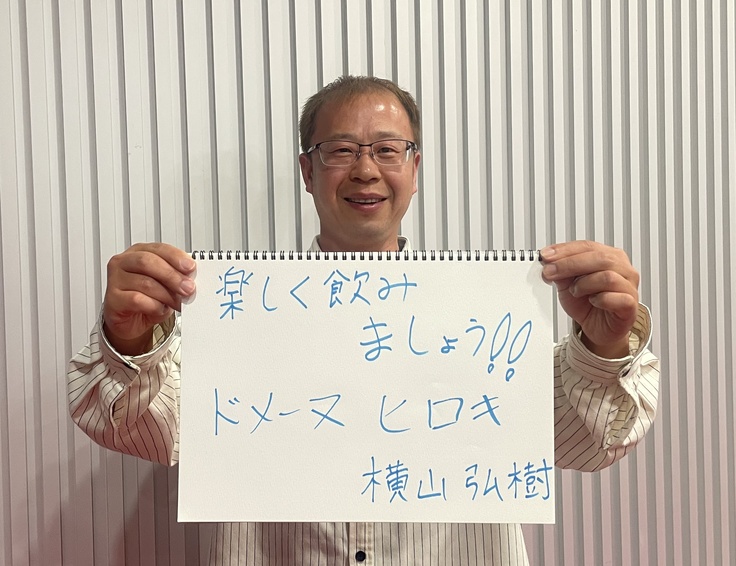 楽しく飲み
ましょう!!
ドメーヌ ヒロキ
横山 弘樹